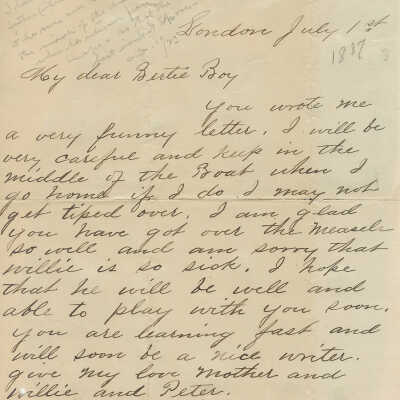 London July 1st
1887
My dear Bertie Boy
You wrote me
a very funny letter. I will be
very careful and keep in the
middle of the Boat when I
go home if I do I may not
get tiped over. I am glad
you have got over the measels
so well and am sorry that
willie is so sick. I hope
that he will be well and
able to play with you soon.
you are learning fast and
will soon be a nice writer.
give my love mother and
willie and Peter.